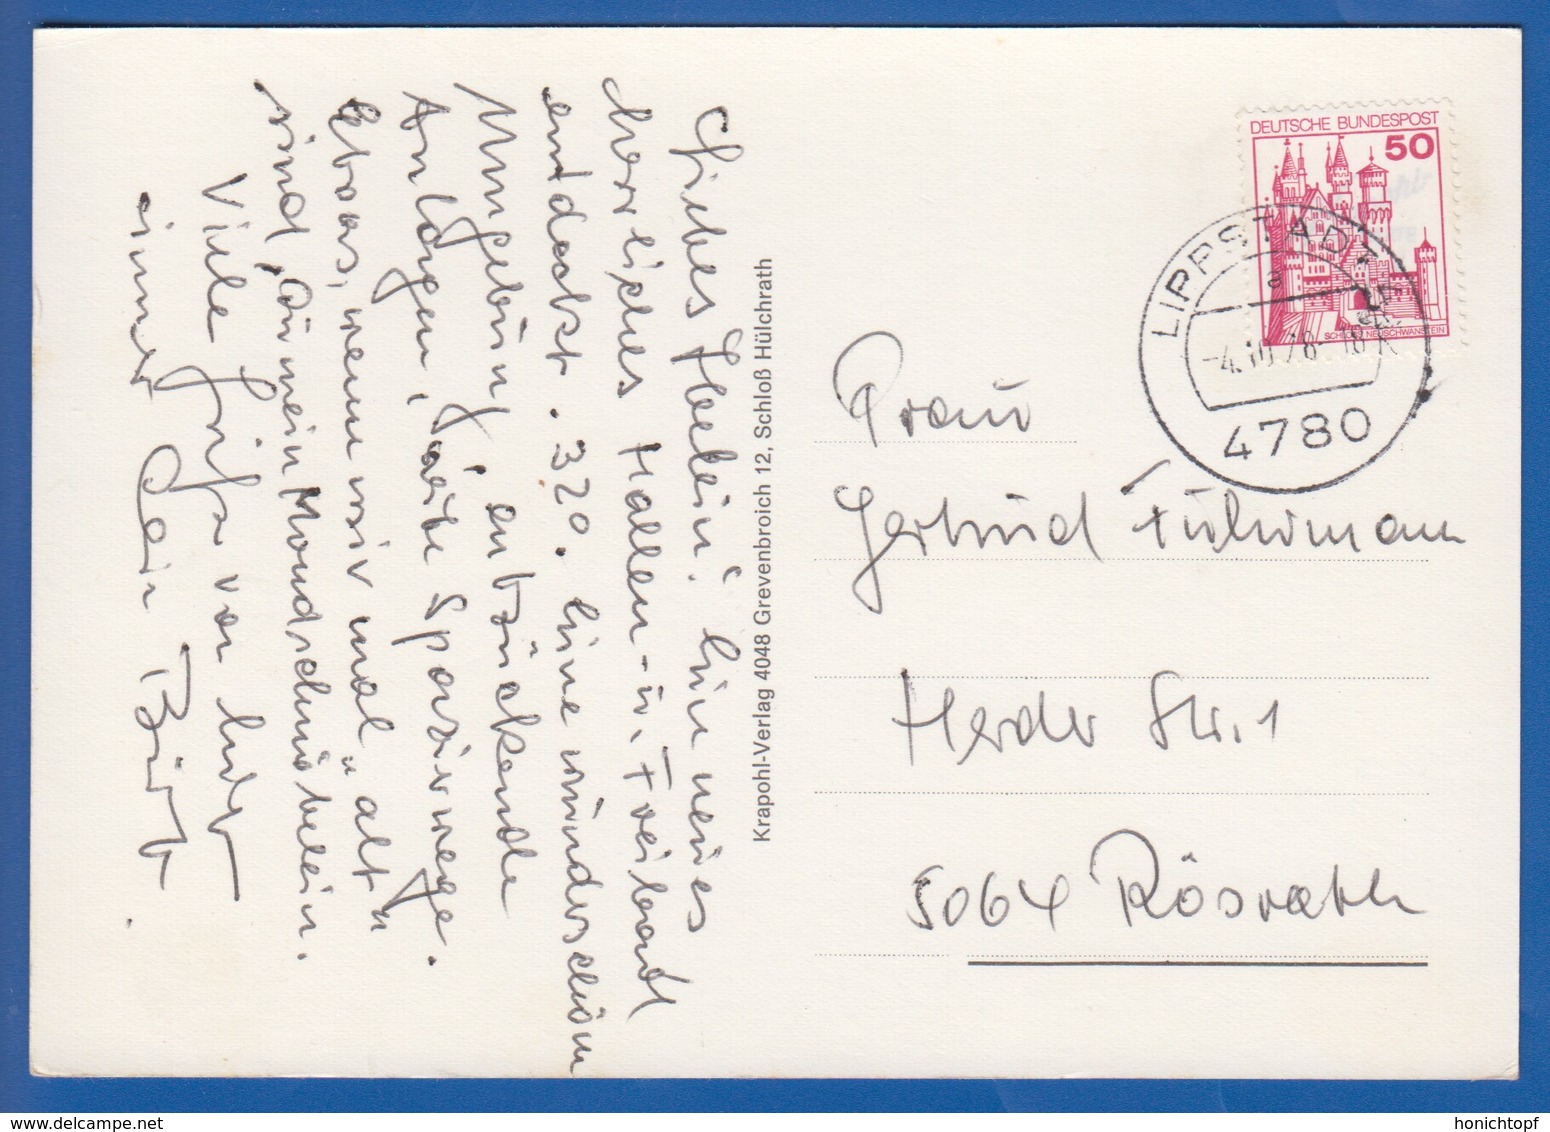 Liebes Herlein! Ein neues
herrliches Hallen- u. Freibad
entdeckt. 32°. Eine wunderschöne
Umgebung, entzückende
Anlagen, weite Spazierwege.
Etwas, wenn wir mal "alt"
sind, Du mein Mondscheinbelein.
Viele Grüße von Deiner
immer Dein
Krapohl-Verlag 4048 Grevenbroich 12, Schloß Hülchrath
DEUTSCHE BUNDESPOST
50
SCHLOSS NEUSCHWANSTEIN
LIPPSTADT
a
-4.10.78-18
4780
Frau
Gertrud Fuhrmann
Herder Str. 1
5064 Rösrath
delcampe.net
honichtopf